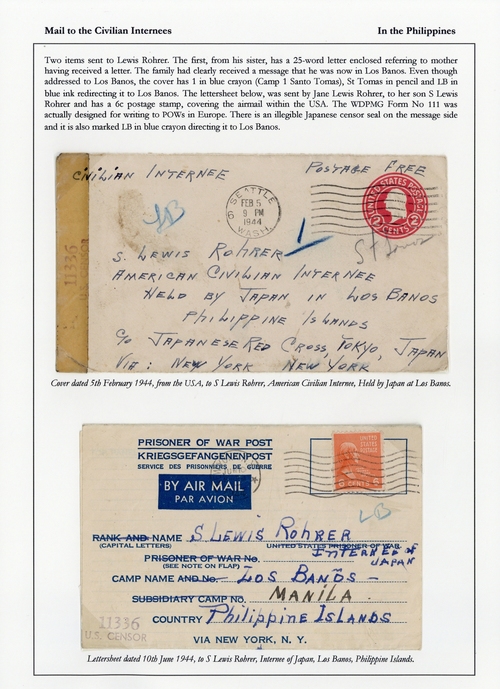 Mail to the Civilian Internees
In the Philippines
Two items sent to Lewis Rohrer. The first, from his sister, has a 25-word letter enclosed referring to mother
having received a letter. The family had clearly received a message that he was now in Los Banos. Even though
addressed to Los Banos, the cover has 1 in blue crayon (Camp 1 Santo Tomas), St Tomas in pencil and LB in
blue ink redirecting it to Los Banos. The lettersheet below, was sent by Jane Lewis Rohrer, to her son S Lewis
Rohrer and has a 6c postage stamp, covering the airmail within the USA. The WDPMG Form No 111 was
actually designed for writing to POWs in Europe. There is an illegible Japanese censor seal on the message side
and it is also marked LB in blue crayon directing it to Los Banos.
CIVILIAN INTERNEE
POSTAGE FREE
SEATTLE
6
FEB 5
9 PM
1944
WASH.
UNITED STATES POSTAGE
2 CENTS 2
LB
1
St Tomas
11336
S. LEWIS ROHRER
AMERICAN CIVILIAN INTERNEE
HELD BY JAPAN IN LOS BANOS
PHILIPPINE ISLANDS
C/O JAPANESE RED CROSS, TOKYO, JAPAN
VIA: NEW YORK NEW YORK
Cover dated 5th February 1944, from the USA, to S Lewis Rohrer, American Civilian Internee, Held by Japan at Los Banos.
PRISONER OF WAR POST
KRIEGSGEFANGENENPOST
SERVICE DES PRISONNIERS DE GUERRE
BY AIR MAIL
PAR AVION
UNITED
STATES
POSTAGE
6 CENTS 6
LB
RANK AND NAME S. LEWIS ROHRER
(CAPITAL LETTERS) UNITED STATES PRISONER OF WAR
INTERNEE of
JAPAN
PRISONER OF WAR No.
(SEE NOTE ON FLAP)
CAMP NAME AND No. LOS BAÑOS –
SUBSIDIARY CAMP NO. MANILA
COUNTRY Philippine ISLANDS
11336
U.S. CENSOR
VIA NEW YORK, N. Y.
Lettersheet dated 10th June 1944, to S Lewis Rohrer, Internee of Japan, Los Banos, Philippine Islands.